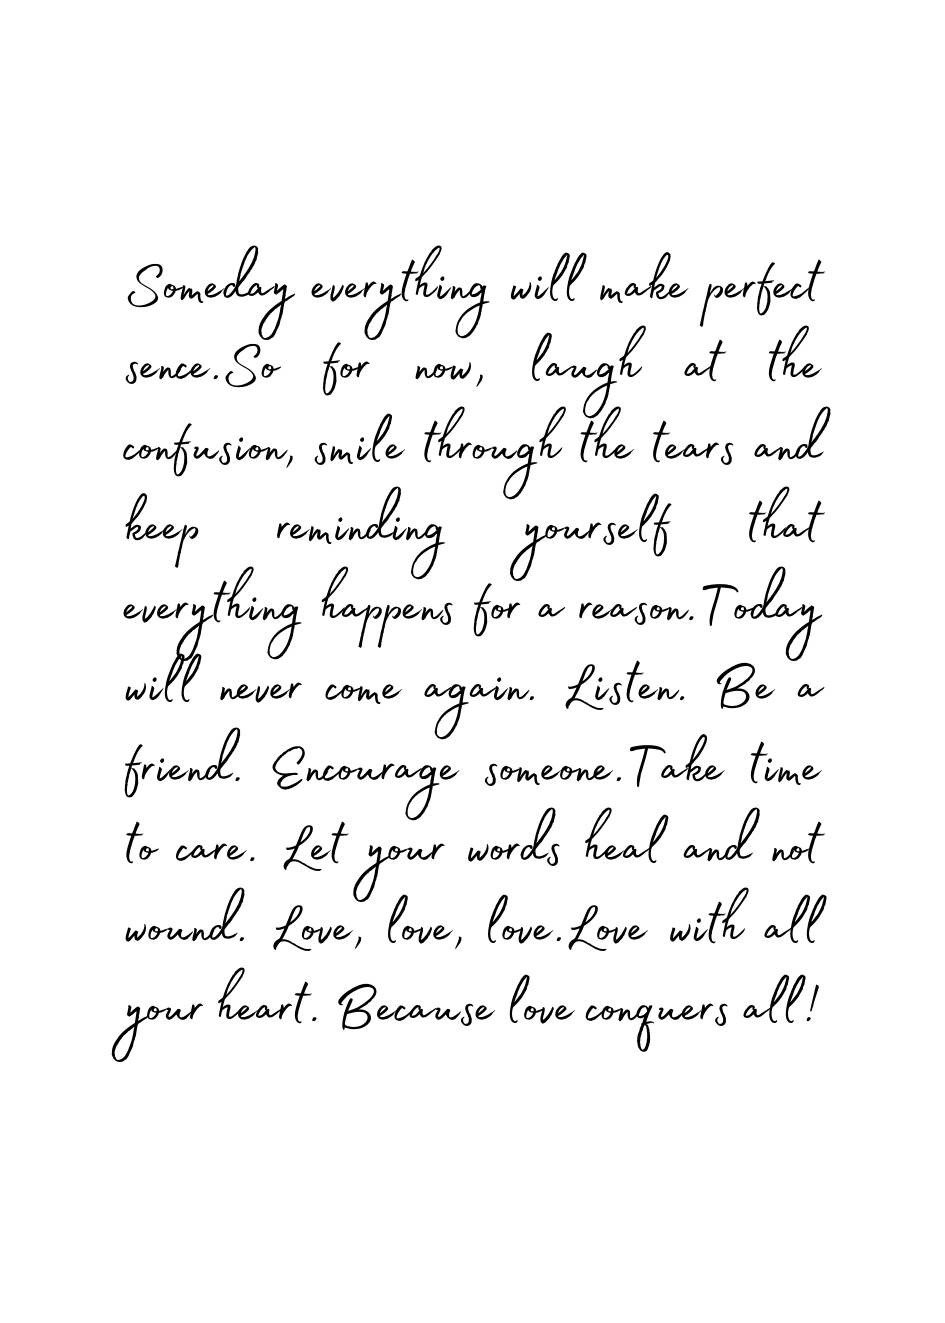 Someday everything will make perfect
sence.So for now, laugh at the
confusion, smile through the tears and
keep reminding yourself that
everything happens for a reason.Today
will never come again. Listen. Be a
friend. Encourage someone.Take time
to care. Let your words heal and not
wound. Love, love, love.Love with all
your heart. Because love conquers all!